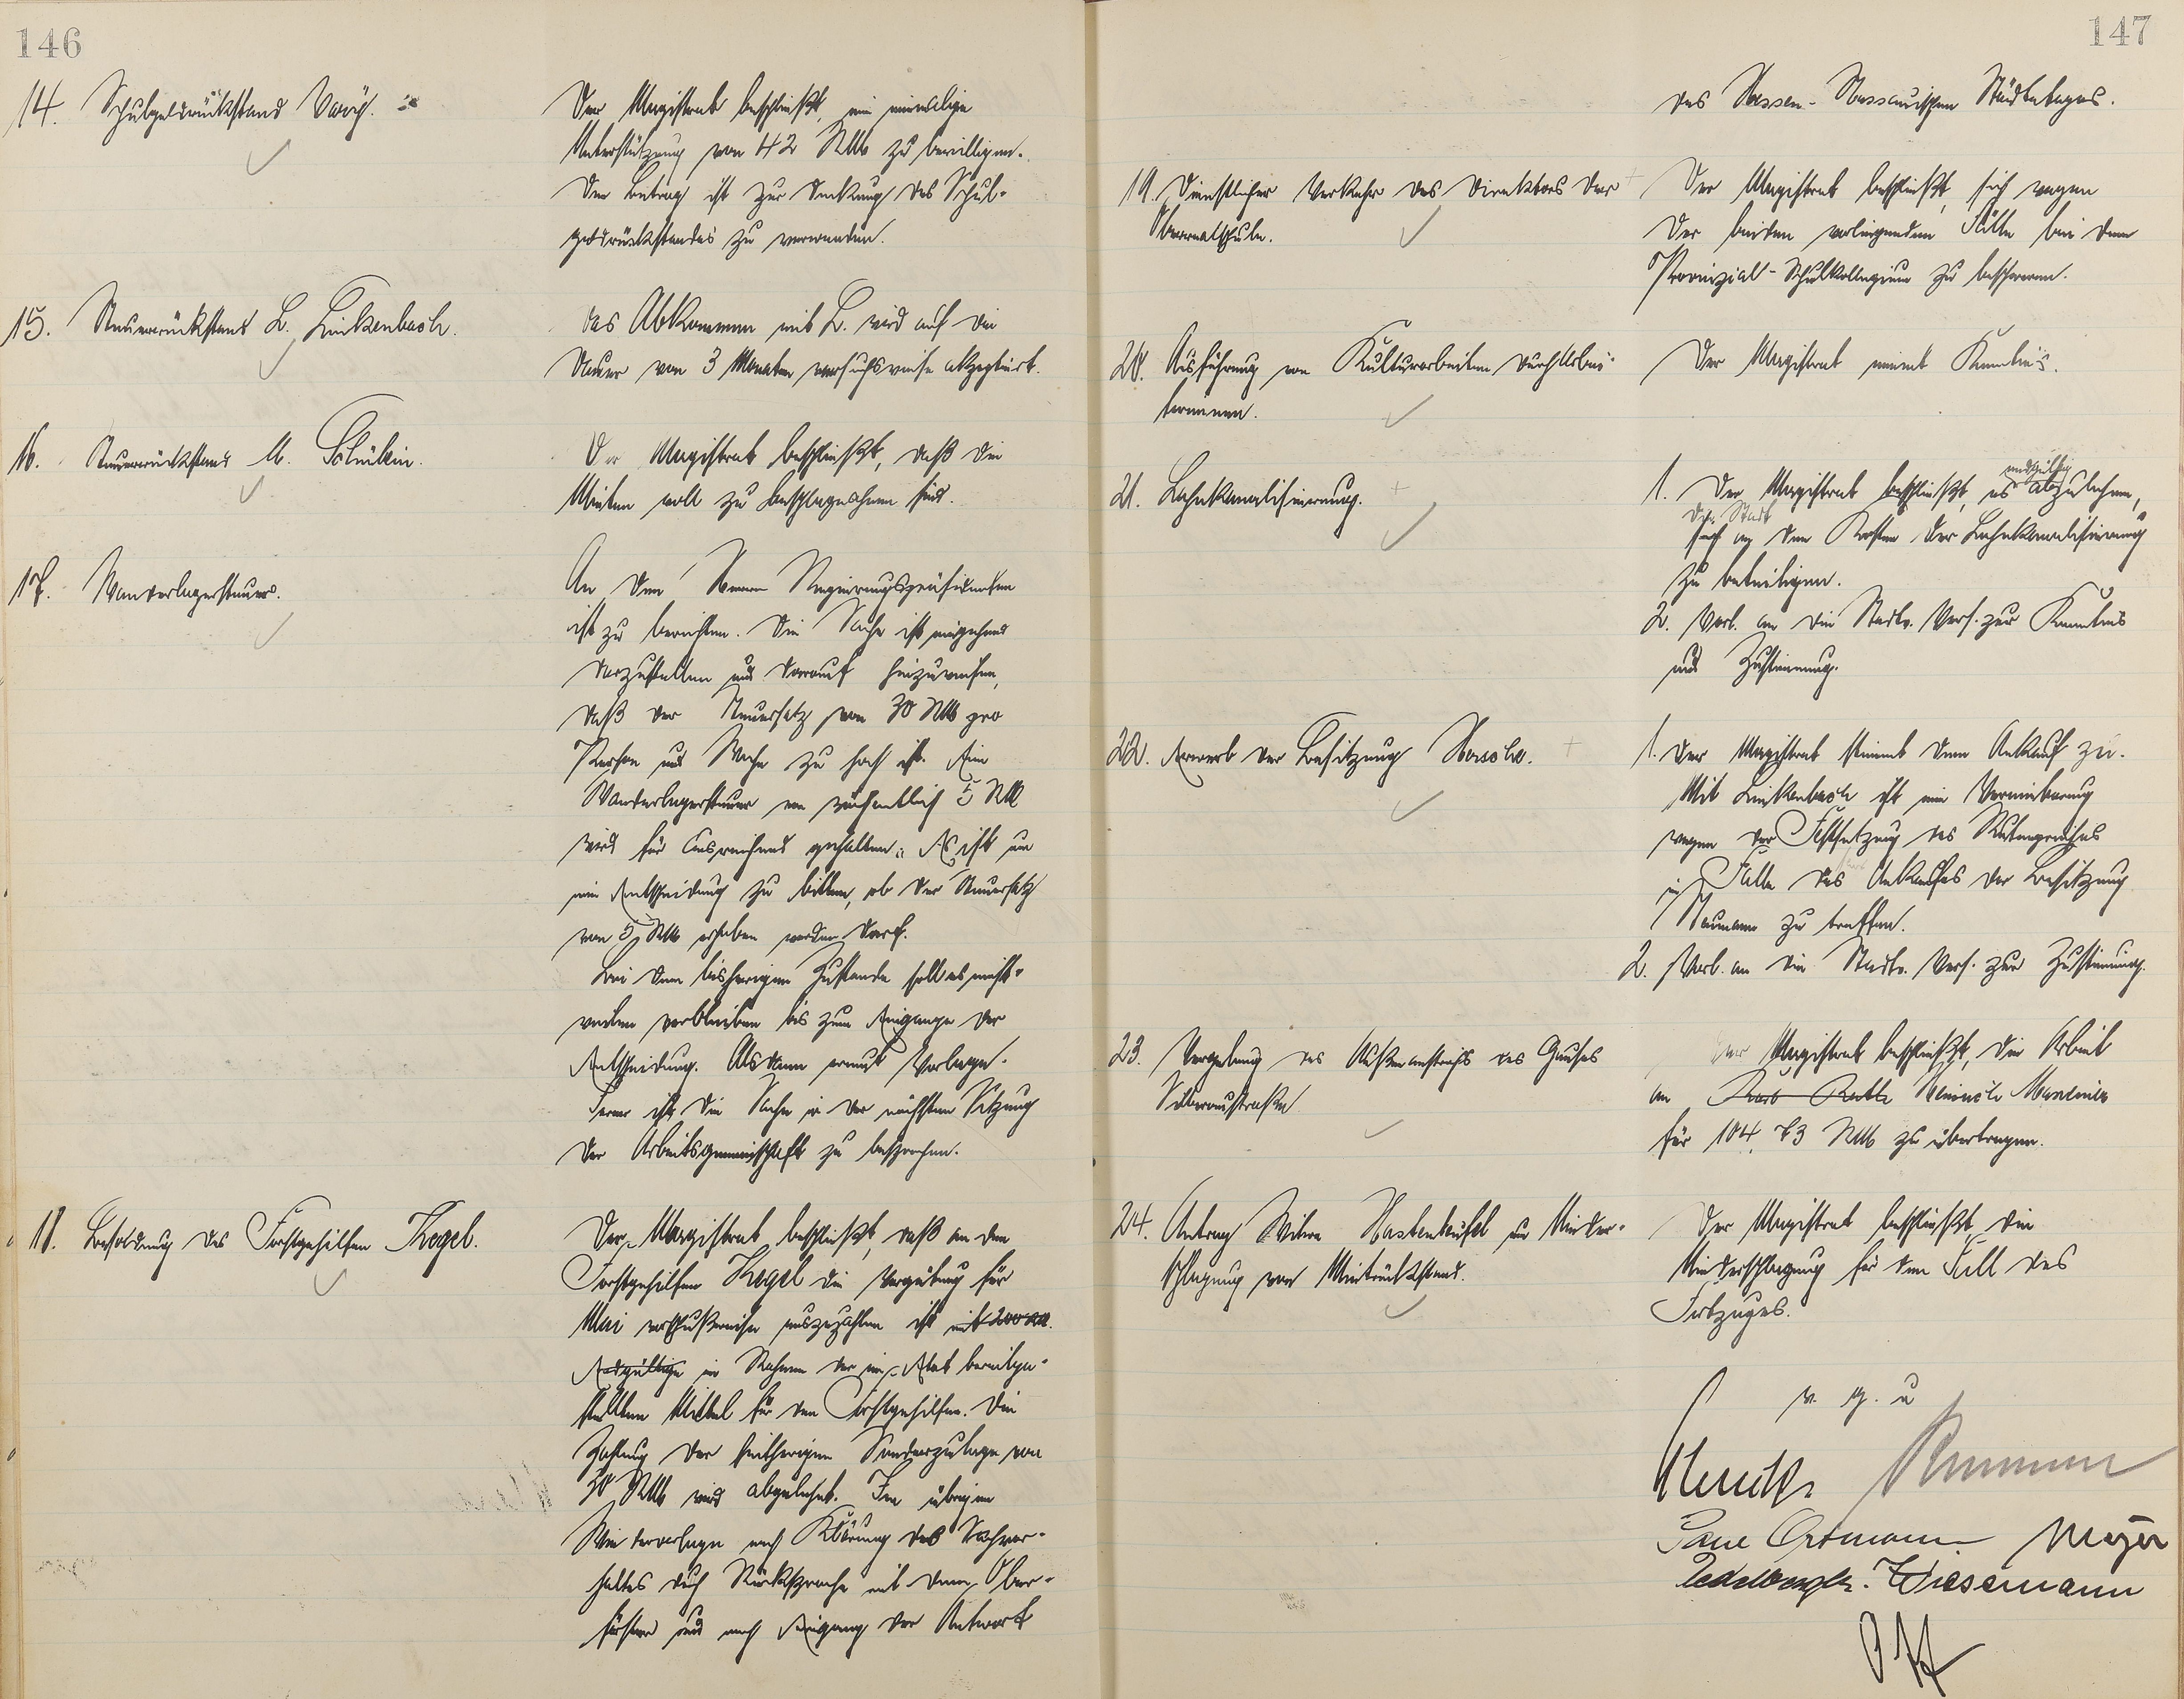 146
14. Schulgeldrückstand
Der Magistrat beschließt, eine einmalige
Unterstützung von 42 RM zu bewilligen.
Der Betrag ist zur Deckung des Schul-
geldrückstandes zu verwenden.
15. Steuerrückstand L. Linkenbach.
Das Abkommen mit L. wird auf die
Dauer von 3 Monaten versuchsweise akzeptiert.
16. Steuerrückstand M.
Der Magistrat beschließt, daß die
Mieten voll zu beschlagnahmen sind.
17. Wanderlagersteuer.
An den Herrn Regierungspräsidenten
ist zu berichten. Die Sache ist eingehend
darzustellen und darauf hinzuweisen,
daß der Steuersatz von 30 RM pro
Person und Woche zu hoch ist. Eine
Wanderlagersteuer von wöchentlich 5 RM
wird für ausreichend gehalten. Es ist um
eine Entscheidung zu bitten, ob der Steuersatz
von 5 RM erhoben werden darf.
Bei dem bisherigen Zustande soll es einst-
weilen verbleiben bis zum Eingange der
Entscheidung. Alsdann erneut Vorlage.
Ferner ist die Sache in der nächsten Sitzung
der Arbeitsgemeinschaft zu besprechen.
18. Besoldung des Forstgehilfen Kegel.
Der Magistrat beschließt, daß an den
Forstgehilfen Kegel die Vergütung für
Mai vorschußweise auszuzahlen ist mit 200 RM.
Endgültige im Rahmen der im Etat bereitge-
stellten Mittel für den Forstgehilfen. Die
Zahlung der seitherigen Sonderzulage von
30 RM wird abgelehnt. Im übrigen
Wiedervorlage nach Klärung des Sachver-
haltes durch Rücksprache mit dem Ober-
förster und nach Eingang der Antwort
147
des Hessen-Nassauischen Städtetages.
19. Dienstlicher Verkehr des Direktors der
Oberrealschule.
Der Magistrat beschließt, sich wegen
der beiden vorliegenden Fälle bei dem
Provinzial-Schulkollegium zu beschweren.
20. Ausführung von Kulturarbeiten durch Arbei-
terinnen.
Der Magistrat nimmt Kenntnis.
21. Lahnkanalisierung.
endgültig
1. Der Magistrat beschließt, es abzulehnen,
die Stadt
sich an den Kosten der Lahnkanalisierung
zu beteiligen.
2. Vorl. an die Stadtv. Vers. zur Kenntnis
und Zustimmung.
22. Erwerb der Besitzung
1. Der Magistrat stimmt dem Ankauf zu.
Mit Linkenbach ist eine Vereinbarung
wegen der Festsetzung des
im Falle des Ankaufes der Besitzung
Naumann zu treffen.
2. Vorl. an die Stadtv. Vers. zur Zustimmung.
23. Vergebung des Außenanstrichs des Hauses
Silberaustraße
Der Magistrat beschließt, die Arbeit
an Heinrich
für 104,73 RM zu übertragen.
24. Antrag Witwe Hastenteufel um Nieder-
schlagung von Mietrückstand.
Der Magistrat beschließt die
Niederschlagung für den Fall des
Fortzuges.
v. g. u
Ortmann Meyer
Wiesemann